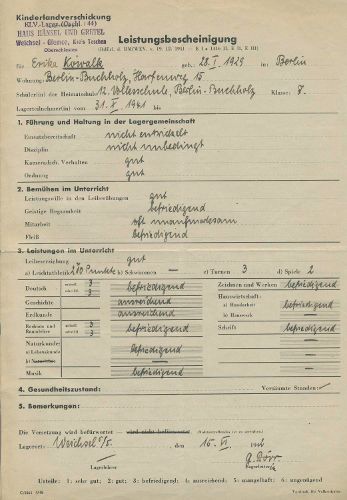 Kinderlandverschickung
KLV-Lager (Oschl./44)
HAUS HÄNSEL UND GRETEL
Weichsel - Glemce, Kreis Teschen
Oberschlesien
Leistungsbescheinigung
für Erika Kowalk geb.: 28. I. 1929 in Berlin
Wohnung: Berlin-Buchholz, Harfenweg 15
Schüler(in) der Heimatschule: 12. Volksschule, Berlin-Buchholz Klasse: 7.
Lagerteilnehmer(in) vom: 31. 1941 bis
1. Führung und Haltung in der Lagergemeinschaft
Einsatzbereitschaft nicht entwickelt
Disziplin nicht unbedingt
Kameradsch. Verhalten gut
Ordnung gut
2. Bemühen im Unterricht
Leistungswille in den Leibesübungen gut
Geistige Regsamkeit befriedigend
Mitarbeit oft unaufmerksam
Fleiß befriedigend
3. Leistungen im Unterricht
Leibeserziehung gut
a) Leichtathletik 270 Punkte b) Schwimmen — c) Turnen 3 d) Spiele 2
Deutsch mündl. 3 schriftl. 3 befriedigend
Zeichnen und Werken befriedigend
Geschichte ausreichend
Hauswirtschaft:
a) Handarbeit befriedigend
Erdkunde ausreichend
b) Hauswerk —
Rechnen und Raumlehre mündl. 3 schriftl. 3 befriedigend
Schrift befriedigend
Naturkunde:
a) Lebenskunde befriedigend
b) Naturlehre —
Musik befriedigend
4. Gesundheitszustand: Versäumte Stunden: —
5. Bemerkungen:
Die Versetzung wird befürwortet — wird nicht befürwortet.
Lagerort: Weichsel O/S. den 15. VI 194
Lagerleiter
Urteile: 1: sehr gut; 2: gut; 3: befriedigend; 4: ausreichend; 5: mangelhaft; 6: ungenügend